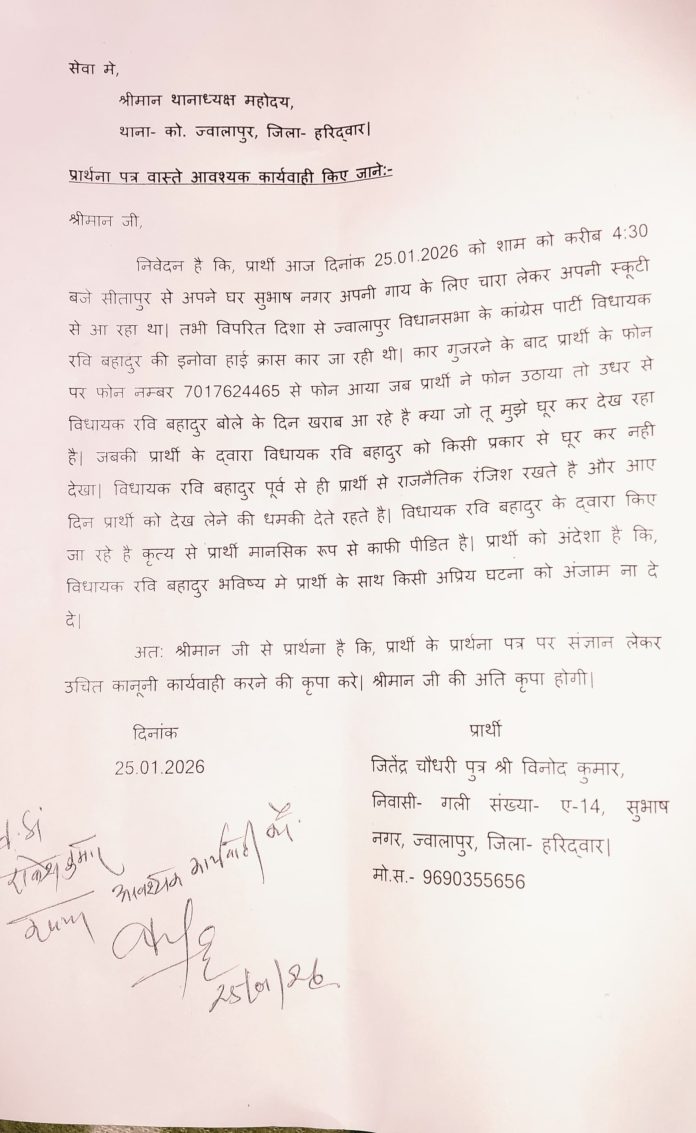 सेवा मे,
श्रीमान थानाध्यक्ष महोदय,
थाना- को. ज्वालापुर, जिला- हरिद्वार|
प्रार्थना पत्र वास्ते आवश्यक कार्यवाही किए जाने:-
श्रीमान जी,
निवेदन है कि, प्रार्थी आज दिनांक 25.01.2026 को शाम को करीब 4:30
बजे सीतापुर से अपने घर सुभाष नगर अपनी गाय के लिए चारा लेकर अपनी स्कूटी
से आ रहा था| तभी विपरित दिशा से ज्वालापुर विधानसभा के कांग्रेस पार्टी विधायक
रवि बहादुर की इनोवा हाई क्रास कार जा रही थी| कार गुजरने के बाद प्रार्थी के फोन
पर फोन नम्बर 7017624465 से फोन आया जब प्रार्थी ने फोन उठाया तो उधर से
विधायक रवि बहादुर बोले के दिन खराब आ रहे है क्या जो तू मुझे घूर कर देख रहा
है| जबकी प्रार्थी के द्वारा विधायक रवि बहादुर को किसी प्रकार से घूर कर नही
देखा| विधायक रवि बहादुर पूर्व से ही प्रार्थी से राजनैतिक रंजिश रखते है और आए
दिन प्रार्थी को देख लेने की धमकी देते रहते है| विधायक रवि बहादुर के द्वारा किए
जा रहे है कृत्य से प्रार्थी मानसिक रूप से काफी पीडित है| प्रार्थी को अंदेशा है कि,
विधायक रवि बहादुर भविष्य मे प्रार्थी के साथ किसी अप्रिय घटना को अंजाम ना दे
दे|
अत: श्रीमान जी से प्रार्थना है कि, प्रार्थी के प्रार्थना पत्र पर संज्ञान लेकर
उचित कानूनी कार्यवाही करने की कृपा करे| श्रीमान जी की अति कृपा होगी|
दिनांक
25.01.2026
प्रार्थी
जितेंद्र चौधरी पुत्र श्री विनोद कुमार,
निवासी- गली संख्या- ए-14, सुभाष
नगर, ज्वालापुर, जिला- हरिद्वार|
मो.स.- 9690355656
राकेश कुमार
कृपया आवश्यक कार्यवाही करें.
25/01/26